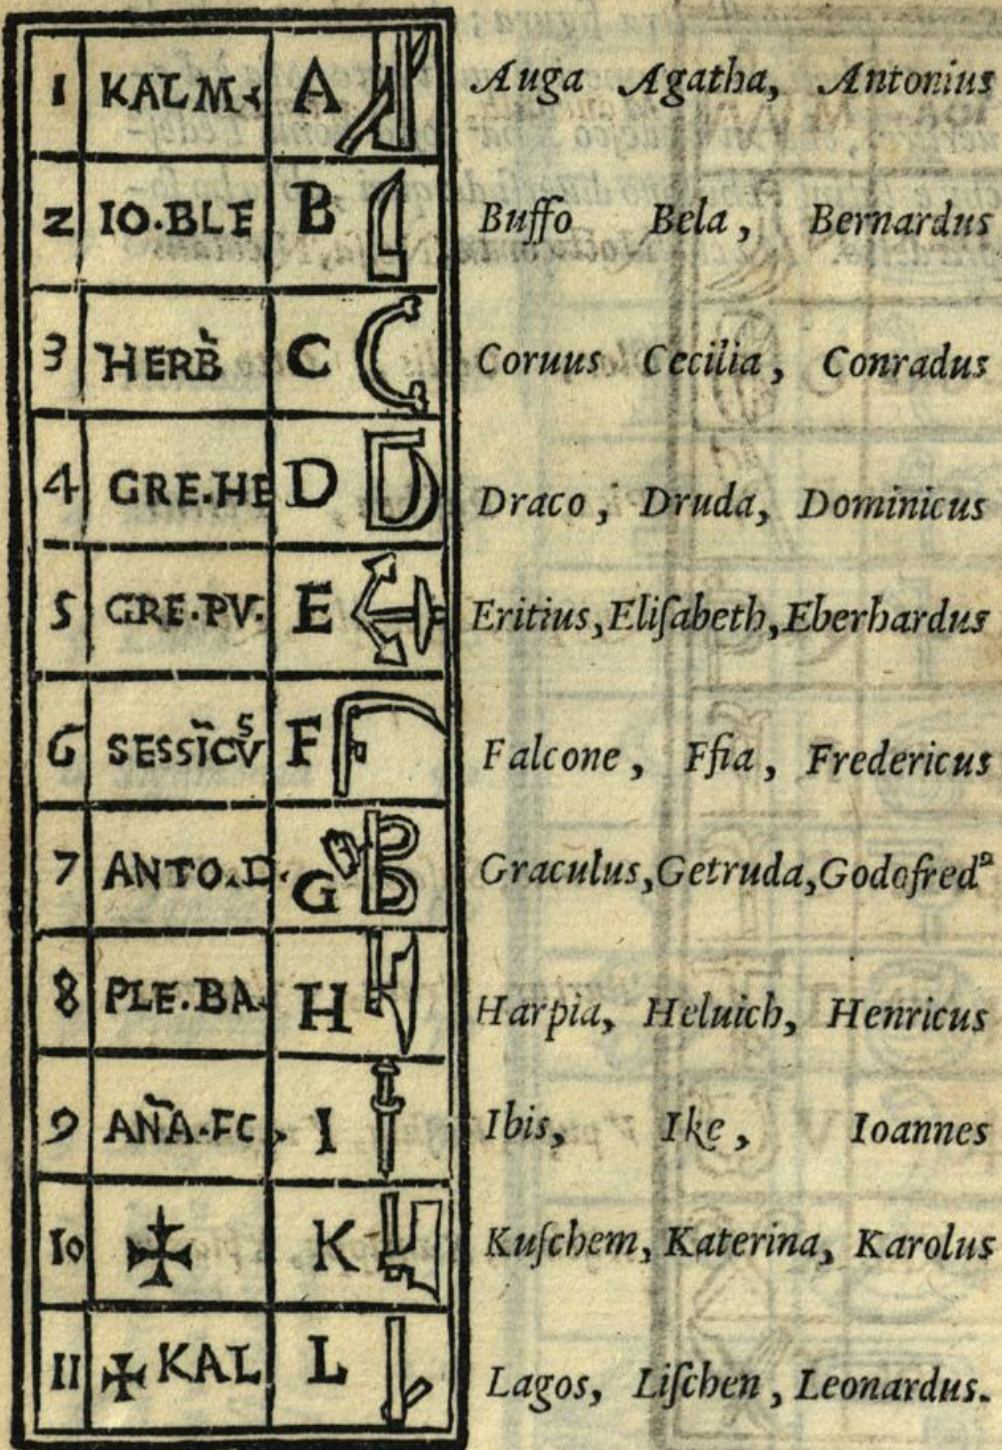 1 KALM. A Auga Agatha, Antonius
2 IO.BLE B Buffo Bela, Bernardus
3 HERB̀ C Coruus Cecilia, Conradus
4 GRE.HE D Draco, Druda, Dominicus
5 GRE.PV. E Eritius, Eliſabeth, Eberhardus
6 SESSĪCV̊S F Falcone, Fſia, Fredericus
7 ANTO.D. G Graculus, Getruda, Godofredꝰ
8 PLE.BA. H Harpia, Heluich, Henricus
9 AÑA.FC, I Ibis, Ike, Ioannes
10 ✠ K Kuſchem, Katerina, Karolus
11 ✠ KAL L Lagos, Liſchen, Leonardus.